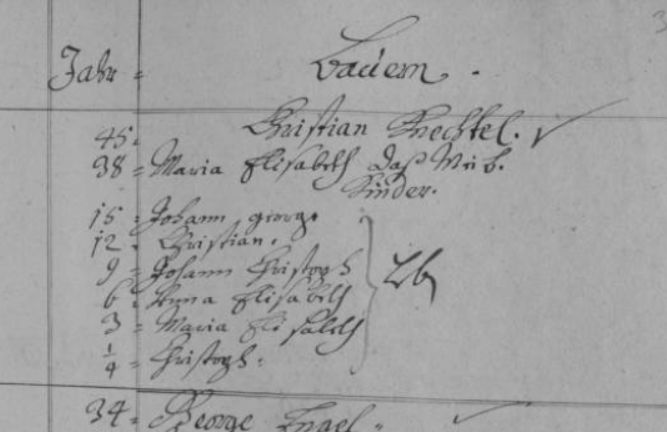 Jahr = Bauern.
45. Christian Knechtel. ✓
38 = Maria Elisabeth Daß Weib.
Kinder.
15 = Johann george
12. Christian.
9 = Johann Christoph
6. Anna Elisabeth
3 = Maria Elisabeth
1/4 = Christoph.
34 = George Engel. ✓